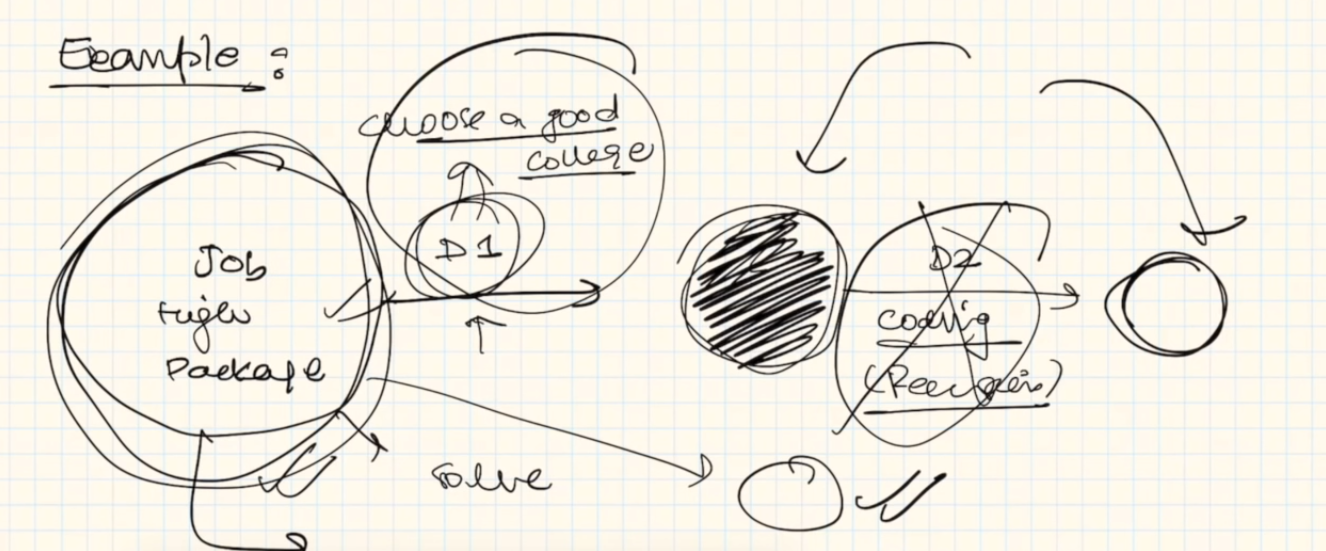 Example :
choose a good
college
D1
Job
High
Package
D2
coding
(Recursion)
solve